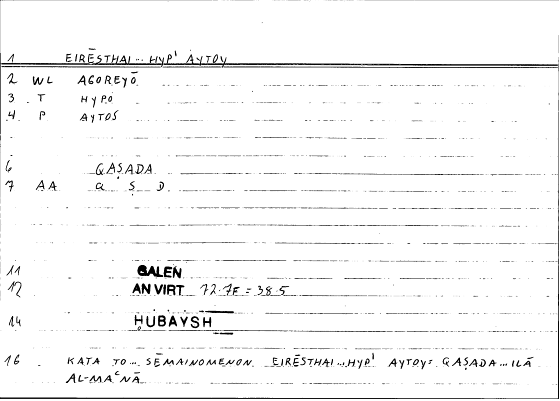 1 EIRĒSTHAI... HYP' AYTOY
2 WL AGOREYŌ
3 T HYPO
4 P AYTOS
6 QAṢADA
7 AA Q Ṣ D
11 GALEN
12 AN VIRT 72.7F = 38.5
14 ḤUBAYSH
16 KATA TO... SĒMAINOMENON EIRĒSTHAI...HYP' AYTOY = QAṢADA... ILĀ
AL-MAʿNĀ